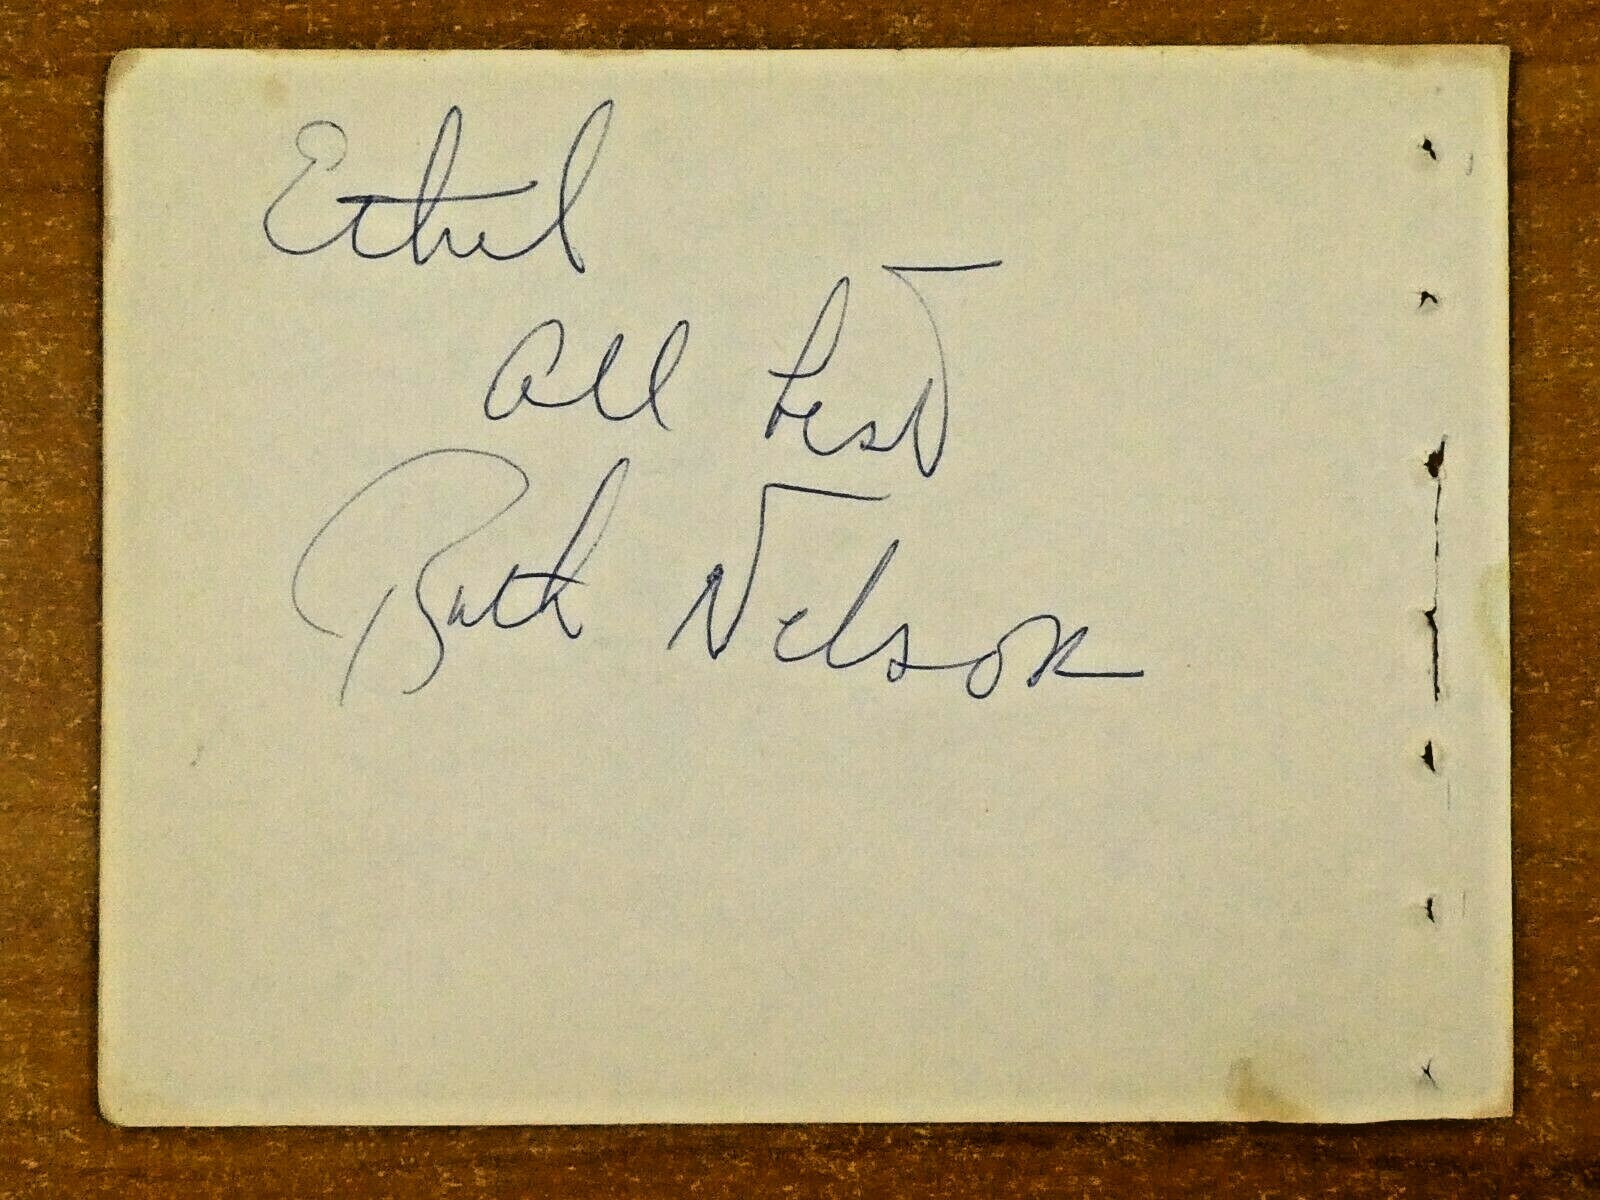 Ethel
all best
Ruth Nelson